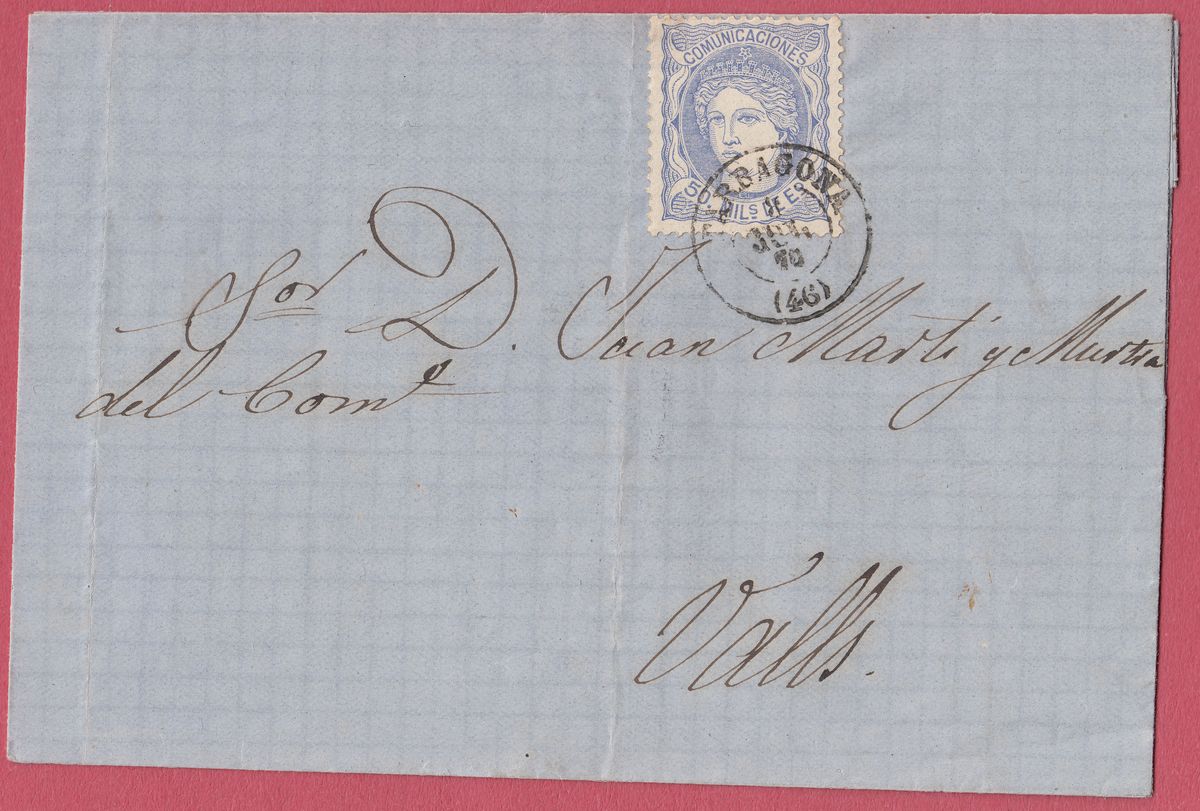 COMUNICACIONES
50 MILS. DE Eo
TARRAGONA
JUL.
70
(46)
Sor D. Juan Marti y Murtra
del Como
Valls.